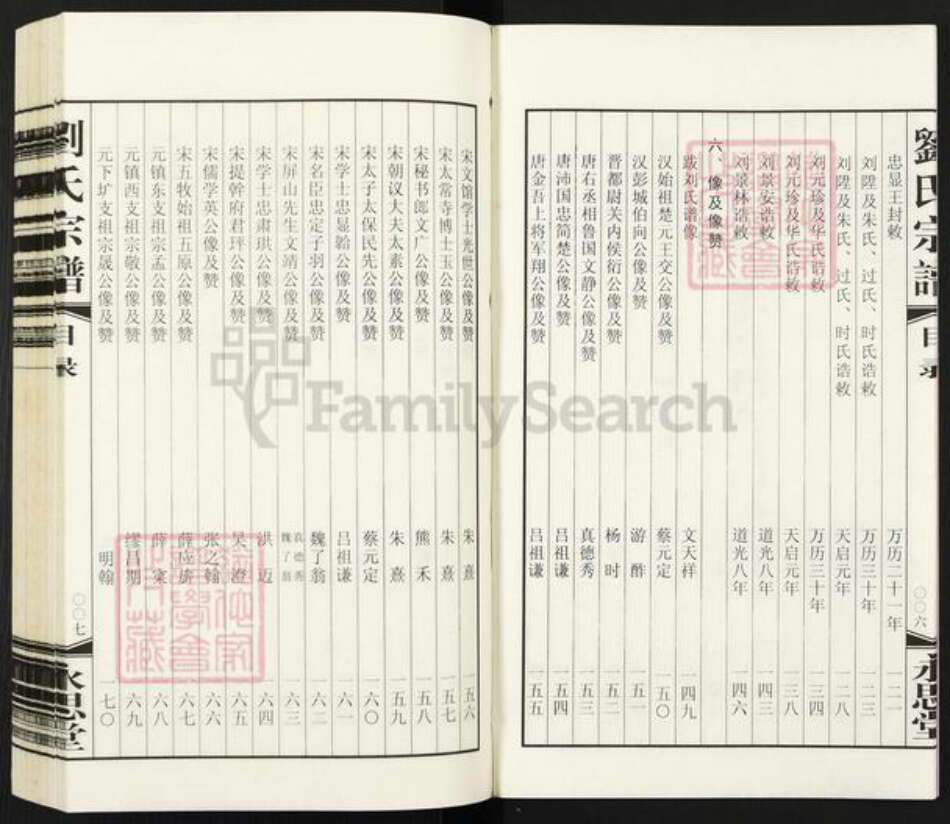 劉氏宗譜
目录
〇〇六
永思堂
忠显王封敕 万历二十一年 一二二
刘陞及朱氏、过氏、时氏诰敕 万历三十年 一二三
刘陞及朱氏、过氏、时氏诰敕 天启元年 一二八
刘元珍及华氏诰敕 万历三十年 一三四
刘元珍及华氏诰敕 天启元年 一三八
刘景安诰敕 道光八年 一四三
刘景林诰敕 道光八年 一四六
六、像及像赞
跋刘氏谱像 文天祥 一四九
汉始祖楚元王交公像及赞 蔡元定 一五〇
汉彭城伯向公像及赞 游酢 一五一
晋都尉关内侯衍公像及赞 杨时 一五二
唐右丞相鲁国文静公像及赞 真德秀 一五三
唐沛国忠简楚公像及赞 吕祖谦 一五四
唐金吾上将军翔公像及赞 吕祖谦 一五五
宋文馆学士光世公像及赞 朱熹 一五六
宋太常寺博士玉公像及赞 朱熹 一五七
宋秘书郎文广公像及赞 熊禾 一五八
宋朝议大夫太素公像及赞 朱熹 一五九
宋太子太保民先公像及赞 蔡元定 一六〇
宋学士忠显韐公像及赞 吕祖谦 一六一
宋名臣忠定子羽公像及赞 魏了翁 一六二
宋屏山先生文靖公像及赞 真德秀 魏了翁 一六三
宋学士忠肃珙公像及赞 洪迈 一六四
宋提幹府君坪公像及赞 吴澄 一六五
宋儒学英公像及赞 张之翰 一六六
宋五牧始祖五原公像及赞 薛应旂 一六七
元镇东支祖宗孟公像及赞 薛寀 一六八
元镇西支祖宗敬公像及赞 缪昌期 一六九
元下圹支祖宗晟公像及赞 明翰 一七〇
劉氏宗譜
目录
〇〇七
永思堂
FamilySearch